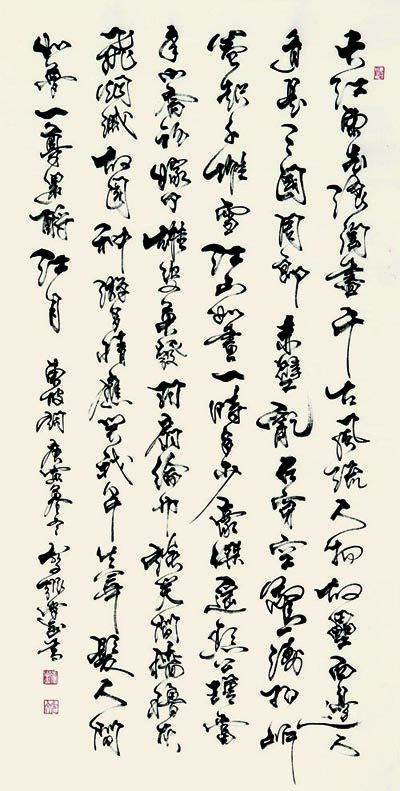 大江東去浪淘盡千古風流人物故壘西邊人
道是三國周郎赤壁亂石穿空驚濤拍岸
卷起千堆雪江山如畫一時多少豪傑遙想公瑾當
年小喬初嫁了雄姿英發羽扇綸巾談笑間檣櫓灰
飛煙滅故國神遊多情應笑我早生華髮人間
如夢一尊還酹江月
東坡詞庚寅冬